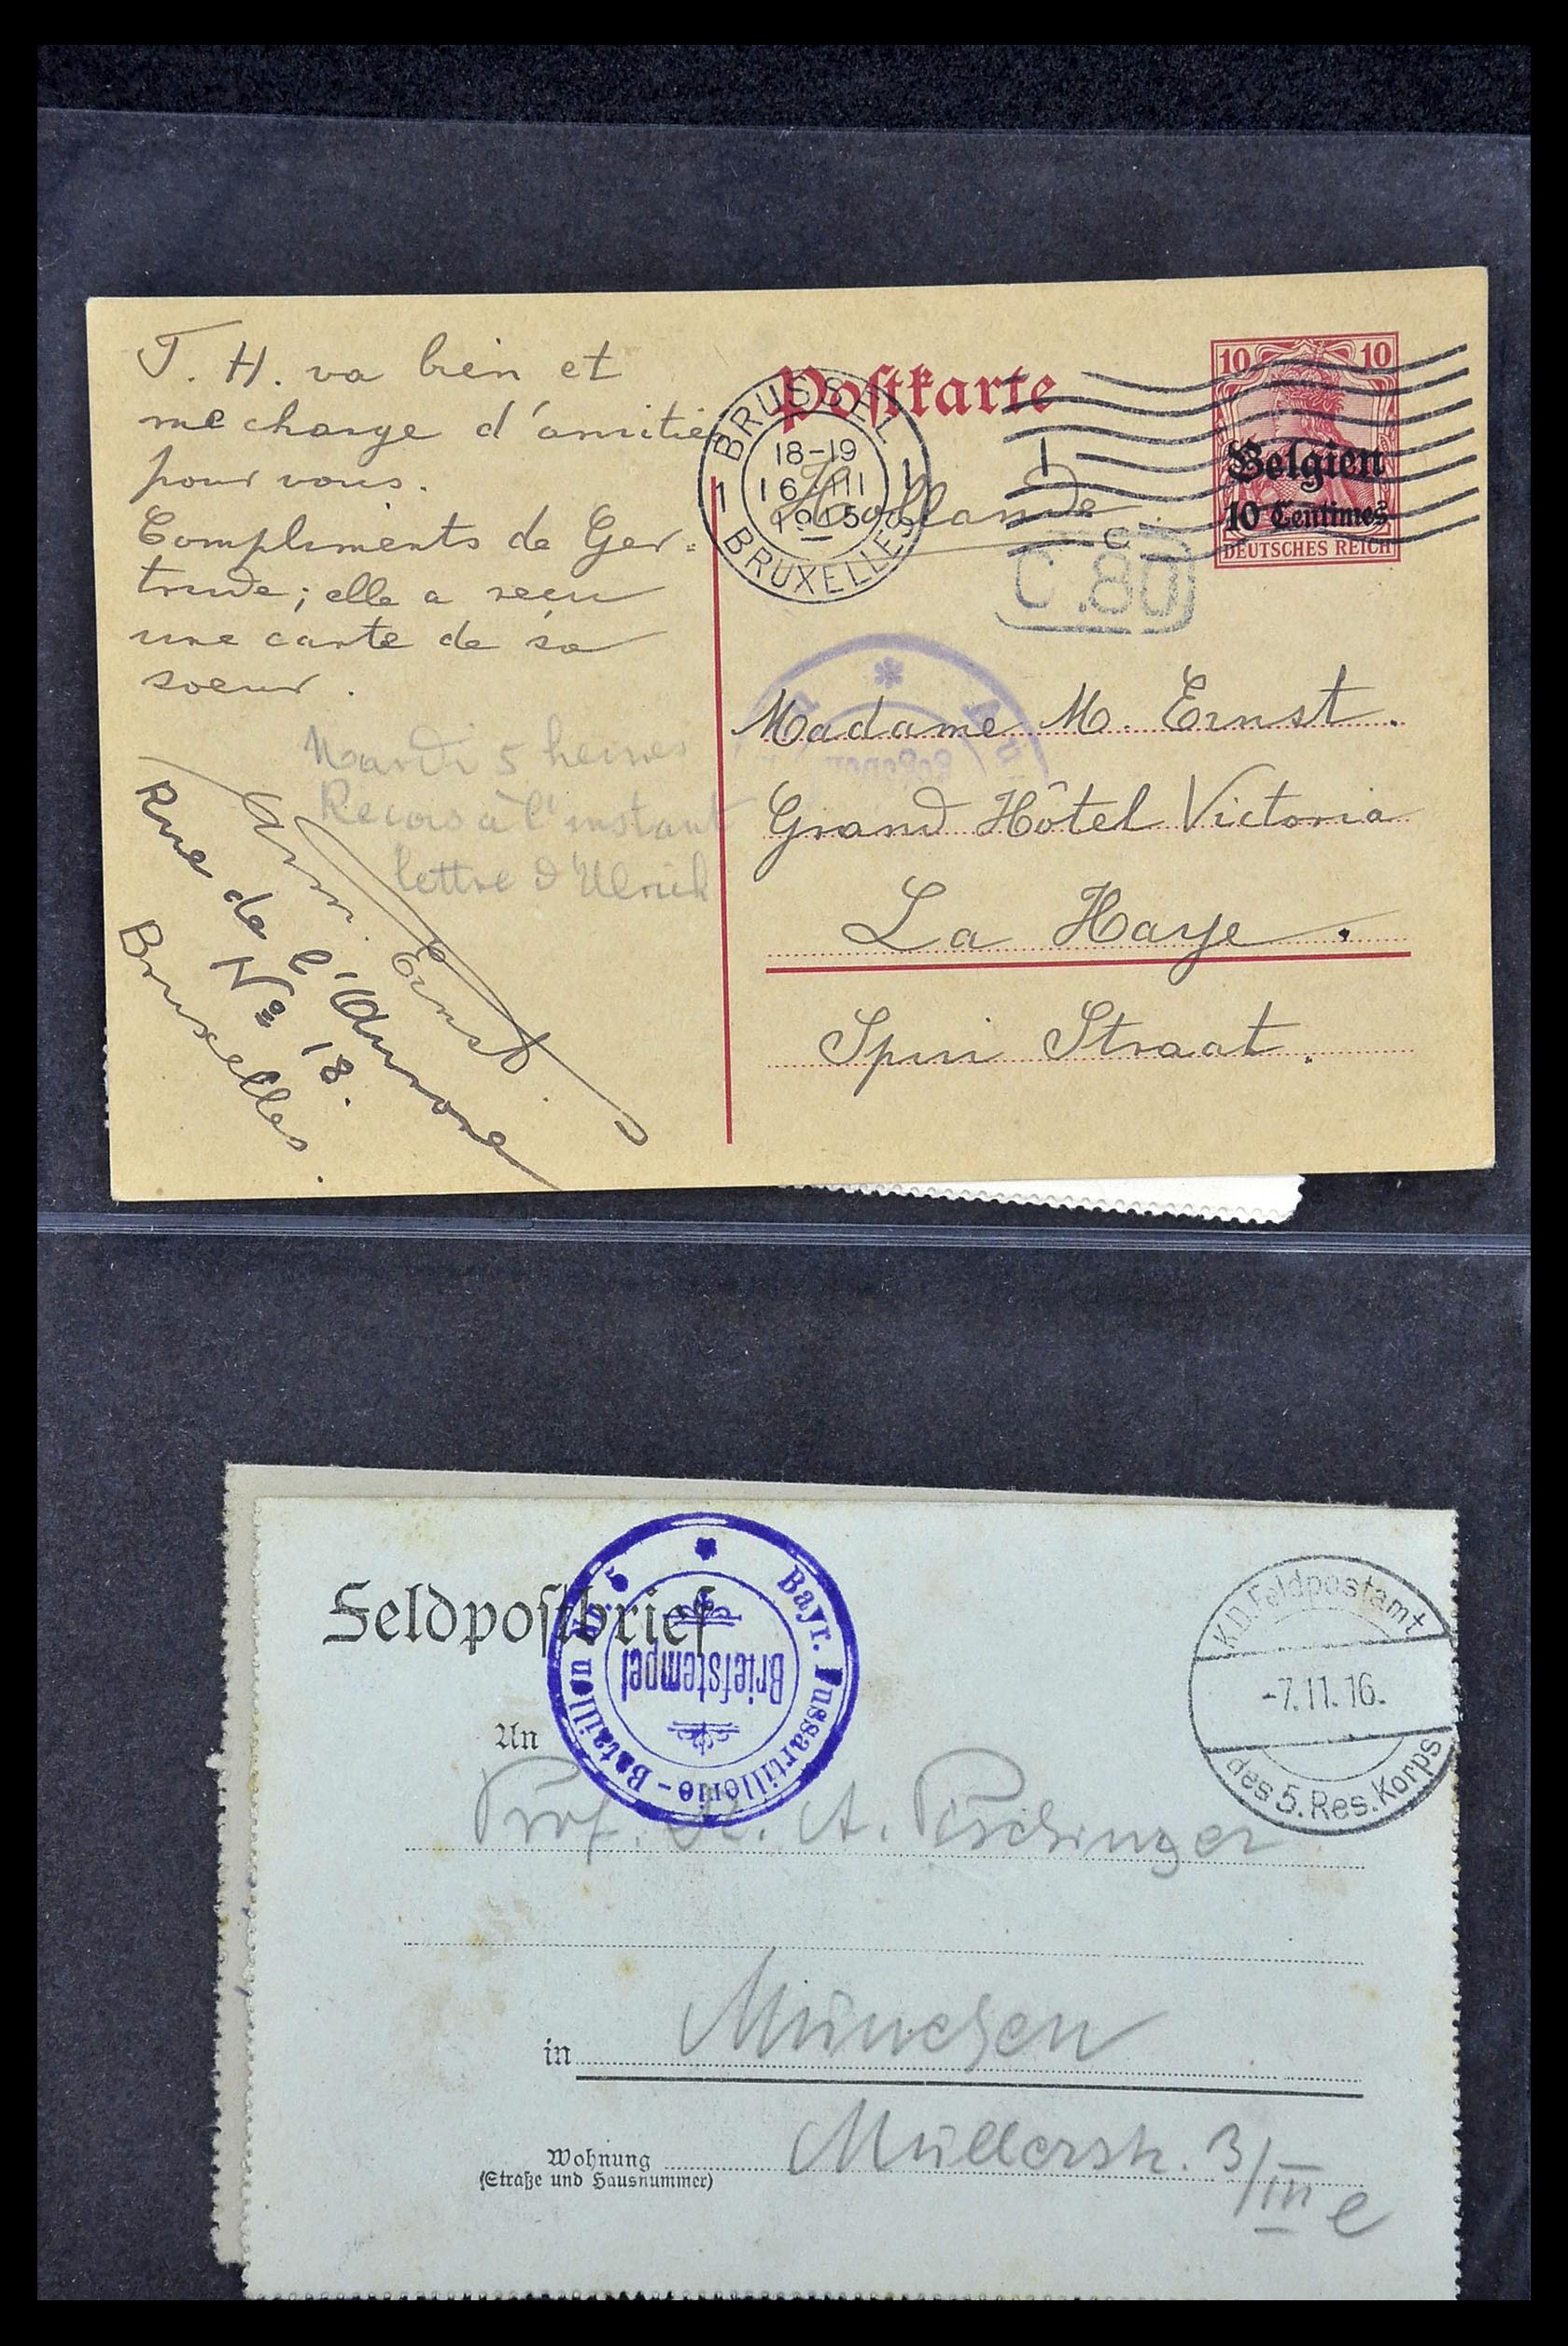 T. H. va bien et
me charge d'amitiés
pour vous.
Compliments de Ger=
trude; elle a reçu
une carte de sa
soeur.
Mardi 5 heures
Reçois à l'instant
lettre d'Ulrich
Arm. Ernst.
Rue de l'Aurore
No 18.
Bruxelles.
Postkarte
BRUSSEL
18-19
16 III
1915
BRUXELLES
1 1
1
C
Hollande.
10 10
Belgien
10 Centimes
DEUTSCHES REICH
C.80
Madame M. Ernst.
Grand Hôtel Victoria
La Haye.
Spui Straat.
Feldpostbrief
Bayr. Fussartillerie-Bataillon No. 5
Briefstempel
K.D. Feldpostamt
-7.11.16.
des 5. Res. Korps
An
Prof. Dr. A. Pischinger
in München
Wohnung
(Straße und Hausnummer)
Müllerstr. 3/III e